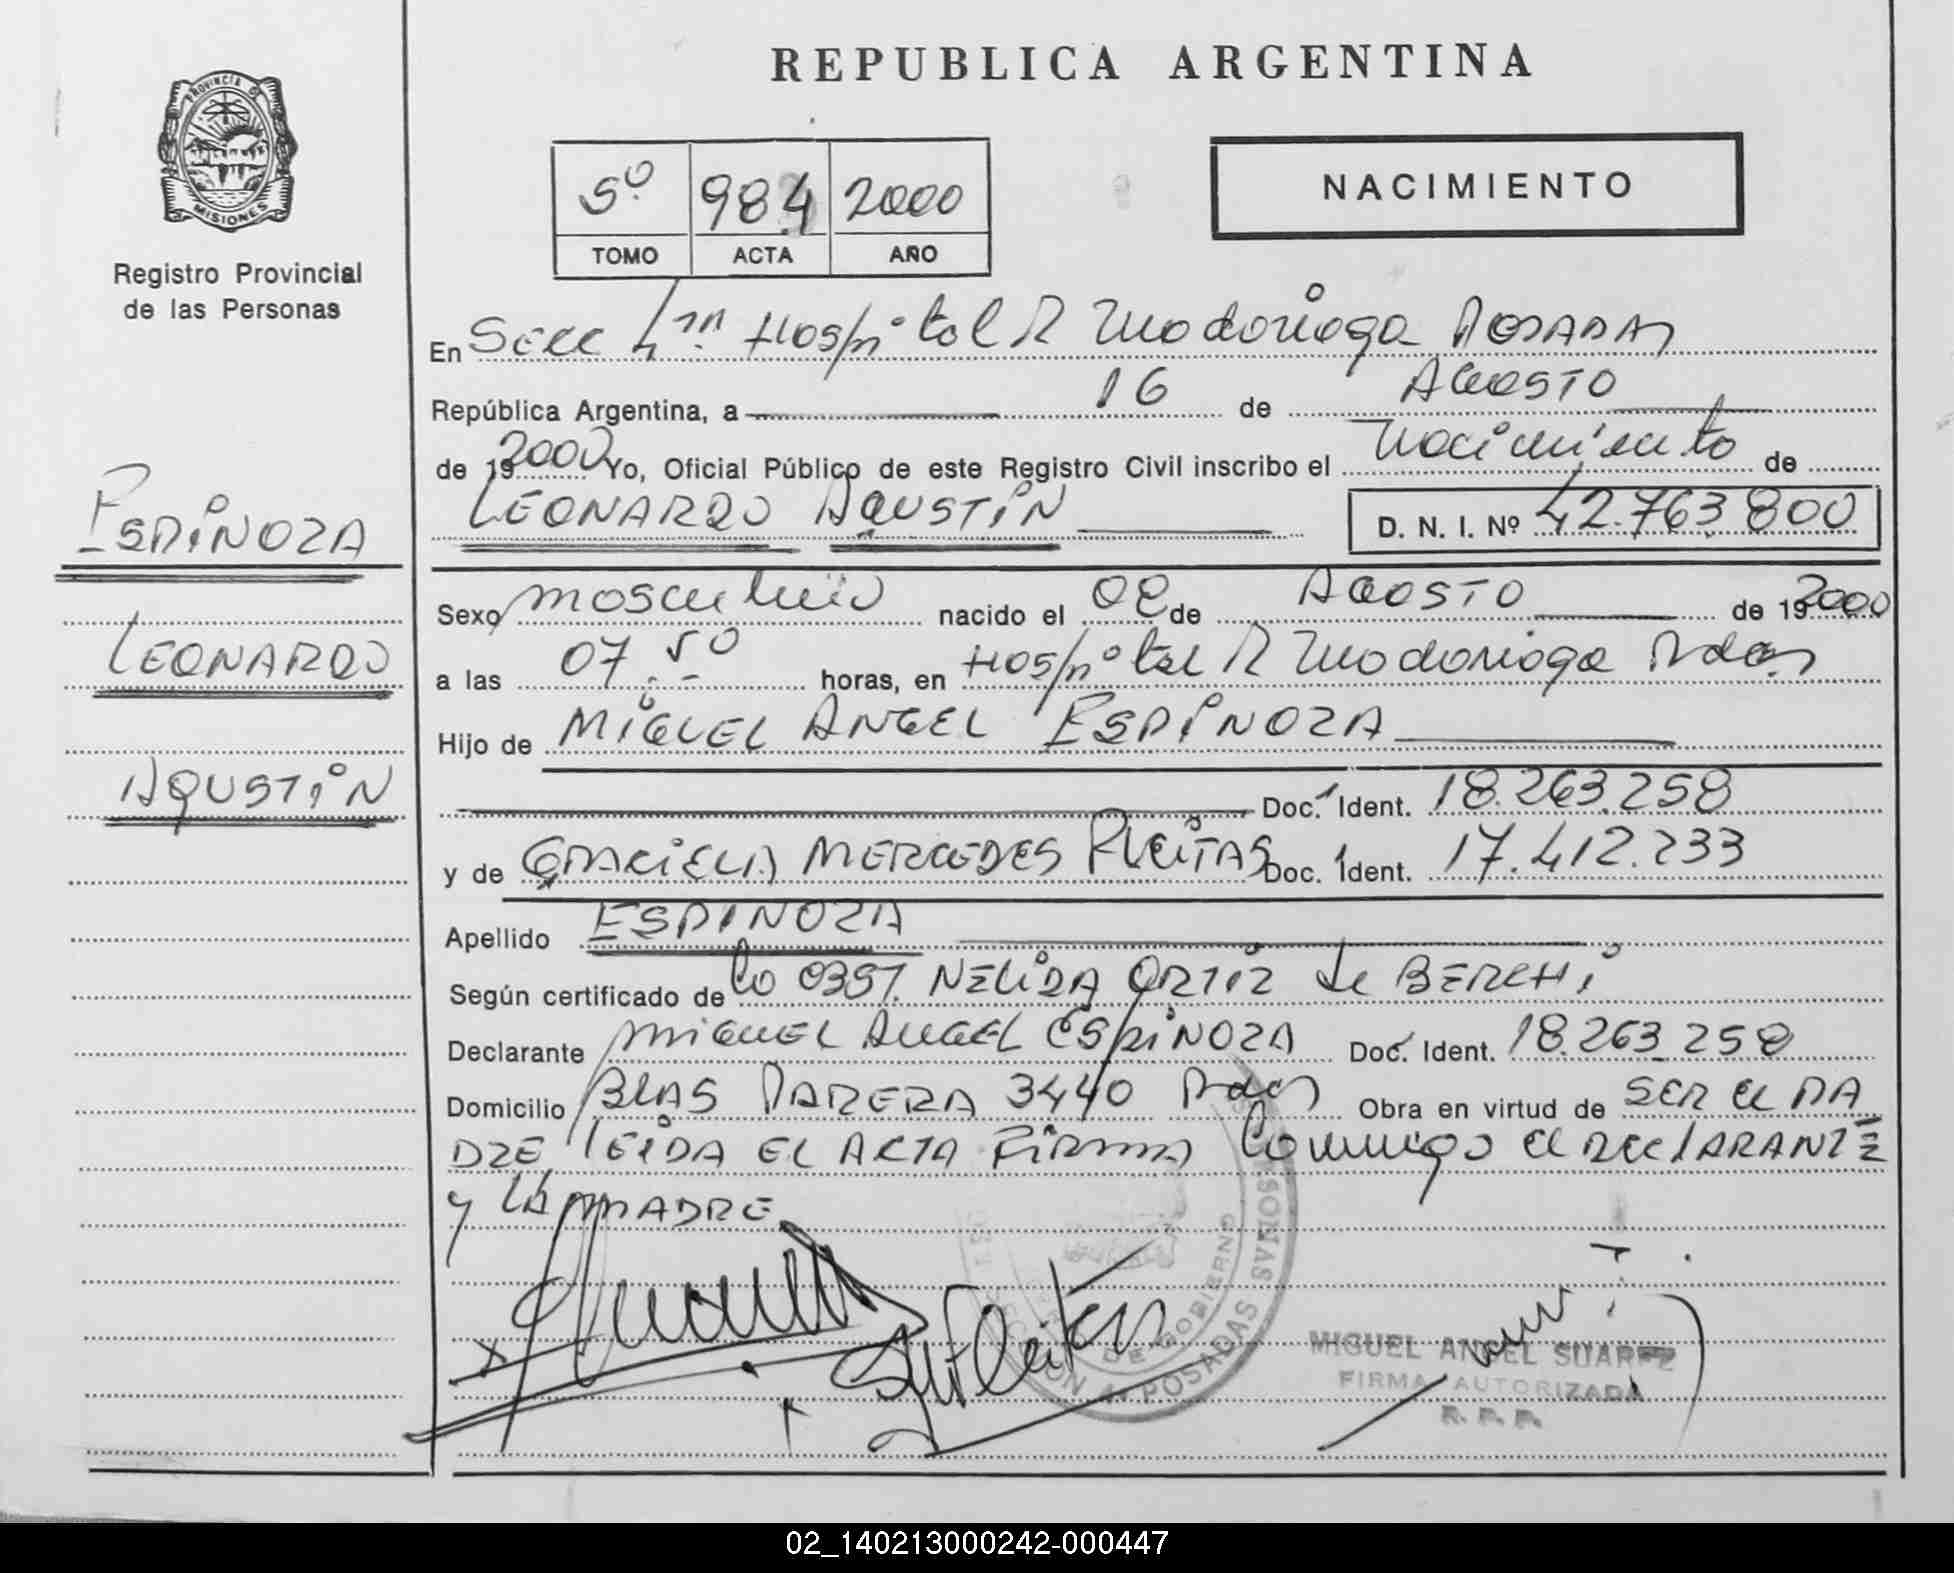 REPUBLICA ARGENTINA
PROVINCIA DE
MISIONES
Registro Provincial
de las Personas
5º 984 2000
TOMO ACTA AÑO
NACIMIENTO
En Secc 4ta Hospital R Madariaga POSADAS
República Argentina, a 16 de AGOSTO
de 19 2000 Yo, Oficial Público de este Registro Civil inscribo el Nacimiento de
LEONARDO AGUSTIN D. N. I. Nº 42.763.800
ESPINOZA
LEONARDO
AGUSTIN
Sexo masculino nacido el 02 de AGOSTO de 19 2000
a las 07.50 horas, en Hospital R Madariaga Pdas
Hijo de MIGUEL ANGEL ESPINOZA
Doc. Ident. 18.263.258
y de GRACIELA MERCEDES FLEITAS Doc. Ident. 17.412.233
Apellido ESPINOZA
Según certificado de NELIDA ORTIZ de BERCHI
Declarante MIGUEL ANGEL ESPINOZA Doc. Ident. 18.263.258
Domicilio BLAS PARERA 3440 Pdas Obra en virtud de SER el PA
DRE, LEIDA EL ACTA FIRMA Conmigo el DECLARANTE
y LA MADRE
DE GOBIERNO
POSADAS
MIGUEL ANGEL SUAREZ
FIRMA AUTORIZADA
R. P. P.
02_140213000242-000447